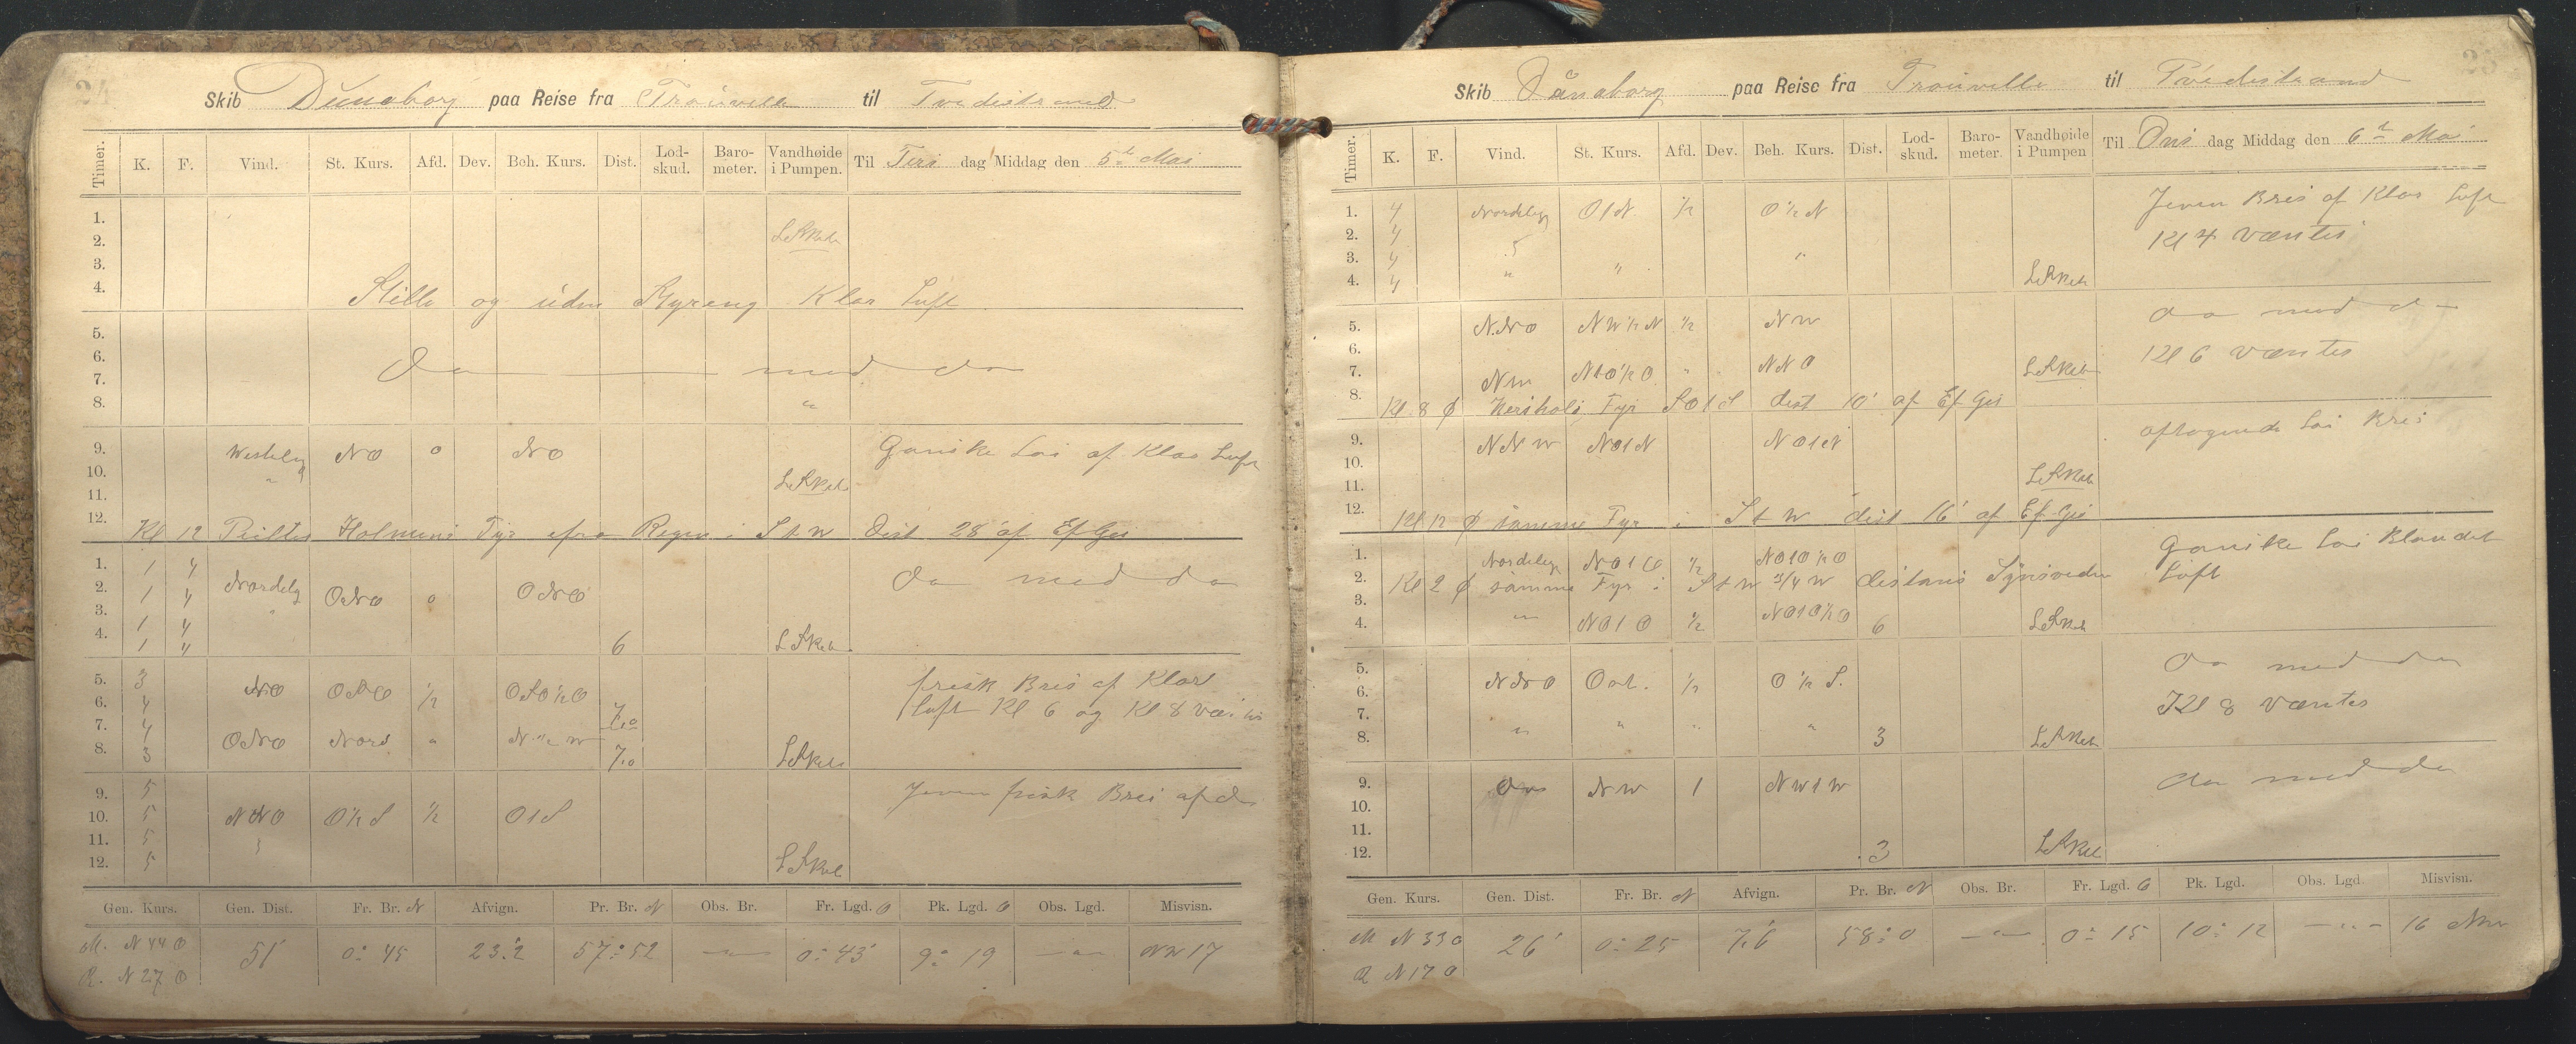 24
Skib Dunaborg paa Reise fra Trouville til Tvedestrand
Timer. K. F. Vind. St. Kurs. Afd. Dev. Beh. Kurs. Dist. Lod-skud. Baro-meter. Vandhøide i Pumpen. Til Tirs dag Middag den 5t Mai
1.
2.
3.
4. Stille og uden Styreng Klar Luft
5.
6.
7. Do med do
8. "
9. Westelig NO 0 NO Ganske Lai af Klar Luft
10. "
11.
12. Kl 12 Holmens Fyr Regn i S t W Dist 28' af Ef Gis
1. 1 4 Nordelig do med do
2. 1 4 ONO 0 ONO
3. 1 4
4. 1 4 6
5. 3 NO OSO 1/2 OSO 1/2 O frisk Bris af Klar
6. 4 7,0 Luft Kl 6 og Kl 8
7. 4 ONO Nord " N 1/2 W
8. 3 7,0
9. 5 Jevn frisk Bris af do
10. 5 NNO O 1/2 S 1/2 O t S
11. 5
12. 5
Gen. Kurs. Gen. Dist. Fr. Br. N Afvign. Pr. Br. N Obs. Br. Fr. Lgd. O Pk. Lgd. O Obs. Lgd. Misvisn.
M. N 44 O 51' 0° 45 23.2 57° 52 — " — 0° 43' 9° 19 — " — NW 17
R. N 27 O
Skib Dünaborg paa Reise fra Trouville til Tvedestrand
Timer. K. F. Vind. St. Kurs. Afd. Dev. Beh. Kurs. Dist. Lod-skud. Baro-meter. Vandhøide i Pumpen Til Ons dag Middag den 6t Mai
1. 4 Nordelig O t N. 1/2 O 1/2 N Jevn Bris af Klar Luft
2. 4 Kl 4 væntes
3. 4
4. 4 " " "
5. N.NO NW 1/2 N 1/2 NW do med do
6. Kl 6 væntes
7. NW NtO 1/2 O " NNO
8. Kl. 8 Fyr SO t S dist 10' af Ef Gis
9. NNW NO t N NO t N aftagende Lai Bris
10.
11.
12. Kl 12 samme Fyr i S t W dist 16' af Ef Gis
1. Nordelig NO t O 1/2 NO t O 1/2 O Ganske Lai Blandet
2. Kl 2 samme Fyr i S t W 3/4 W distans Luft
3.
4. " NO t O 1/2 NO t O 1/2 O 6
5. NNO Ost. 1/2 O 1/2 S. Do med do
6. Kl 8 væntes
7.
8. " " " " 3
9. NW 1 NW t W do med do
10.
11.
12. 3
Gen. Kurs. Gen. Dist. Fr. Br. N Afvign. Pr. Br. N Obs. Br. Fr. Lgd. O Pk. Lgd. Obs. Lgd. Misvisn.
M N 33 O 26' 0° 25 7,6 58° 0 — " — 0° 15 10° 12 — " — 16 NW
R N 17 O